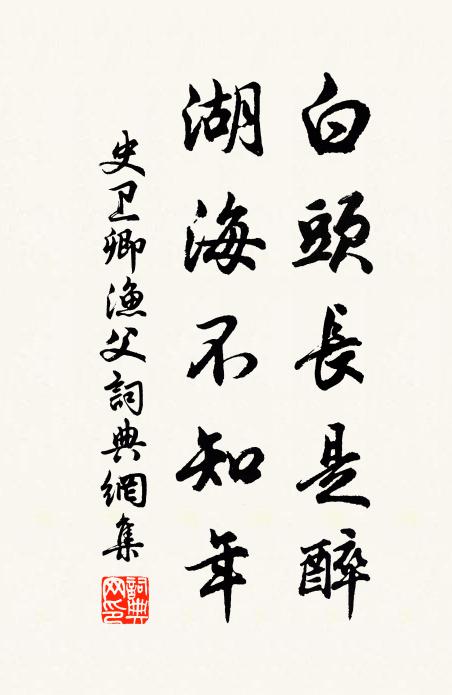 白頭長是醉
湖海不知年
史卫卿漁父詞典網集
詞典網印